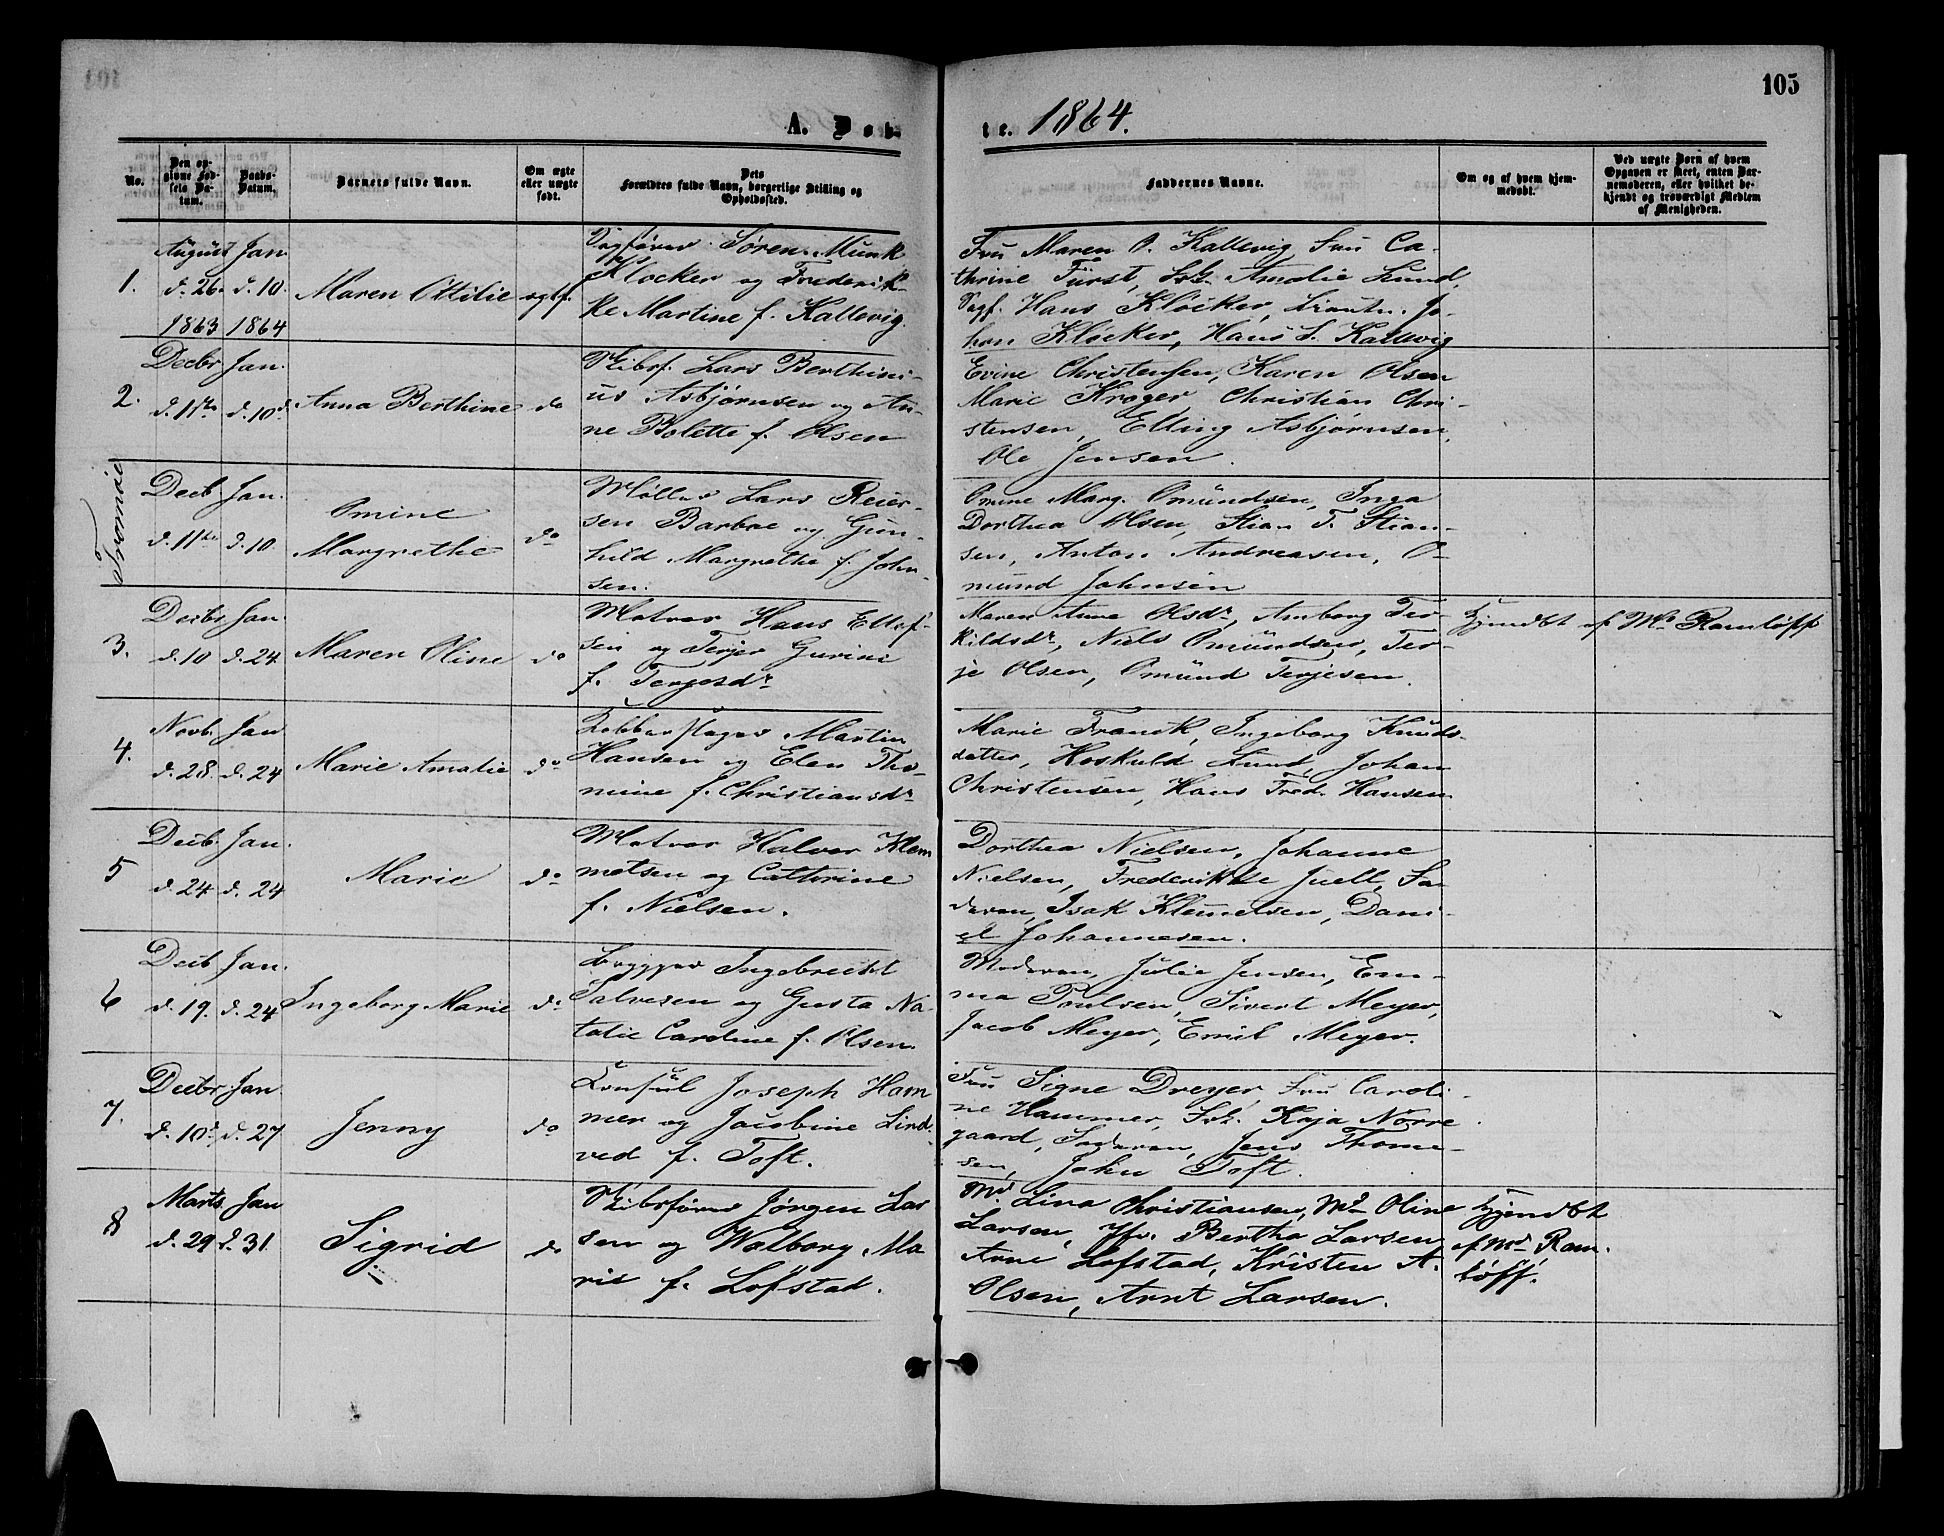 105
A. Døb-
te. 1864.
No.
Den op-
givne Fød-
sels Da-
tum.
Daabs-
Datum.
Barnets fulde Navn.
Om ægte
eller uægte
født.
Dets
Forældres fulde Navn, borgerlige Stilling og
Opholdssted.
Faddernes Navne.
Om og af hvem hjem-
medøbt.
Ved uægte Børn af hvem
Opgaven er skeet, enten Bar-
nemoderen, eller hvilket be-
kjendt og troværdigt Medlem
af Menigheden.
1.
August
d. 26.
1863
Jan.
d. 10.
1864
Maren Ottilie
ægtf.
Sagfører Søren Munk
Kløcker og Frederik-
ke Martine f. Kallevig.
Fru Maren O. Kallevig Fru Ca-
thrine Fürst, Frk. Amalie Lund,
Sagf. Hans Kløcker, Jo-
han Kløcker, Hans S. Kallevig
2.
Decbr
d. 11te
Jan.
d. 10d
Anna Berthine
do
Skibsf. Lars Berthini-
us Asbjørnsen og An-
ne Bolette f. Olsen
Evine Christensen, Karen Olsen
Marie Krøger, Christian Chri-
stensen, Elling Asbjørnsen,
Ole Jensen.
Tromøe
Decb
d. 11te
Jan.
d. 10
Omine
Margrethe
do
Møller Lars Reier-
sen Barbae og Gun-
hild Margrethe f. John-
sen.
Omine Marg. Omundsen, Inga
Dorthea Olsen, Stian T. Stian-
sen, Anton Andreasen, O-
mund Johnsen
3.
Decbr
d. 10
Jan.
d. 24
Maren Oline
do
Matros Hans Ellef-
sen og Terjer Gurine
f. Terjesdr
Maren Anne Olsdr, Amborg Ter-
kildsdr, Niels Omundsen, Ter-
je Olsen, Omund Terjesen.
Hjemdbt af Md. Ramløff
4.
Novb.
d. 28.
Jan
d. 24
Marie Amalie
do
Kobberslager Martin
Hansen og Elen Tho-
mine f. Christiansdr
Marie Franck, Ingeborg Knuds-
datter, Hoskuld Lund, Johan
Christensen, Hans Fred. Hansen
5
Decb.
d. 24
Jan.
d. 24
Marie
do
Matros Halvor Klem
metsen og Cathrine
f. Nielsen.
Dorthea Nielsen, Johanne
Nielsen, Frederikke Juell, Fa-
deren, Isak Klemetsen, Dani-
el Johannesen.
6
Decb
d. 19.
Jan.
d. 24
Ingeborg Marie
do
Brygger Ingebrecht
Salvesen og Gusta Na-
talie Caroline f. Olsen.
Moderen, Julie Jensen, Em-
ma Poulsen, Sivert Meyer,
Jacob Meyer, Emil Meyer.
7.
Decbr
d. 10d
Jan
d. 27
Jenny
do
Konsul Joseph Ham
mer og Jacobine Lind-
ved f. Toft.
Fru Signe Dreyer, Fru Caroli-
ne Hammer, Frk. Kaja Nørre
gaard, Faderen, Jens Thom-
sen, John Toft.
8
Marts
d. 29
Jan
d. 31.
Sigrid
do
Skibsfører Jørgen Lar
sen og Walborg Ma
rie f. Løfstad.
Md. Lina Christiansen, Md. Oline
Larsen, Jfr. Berthe Larsen
Arne Løfstad, Kristen A.
Olsen, Arnt Larsen.
Hjemdbt
af Md. Ram-
løff.